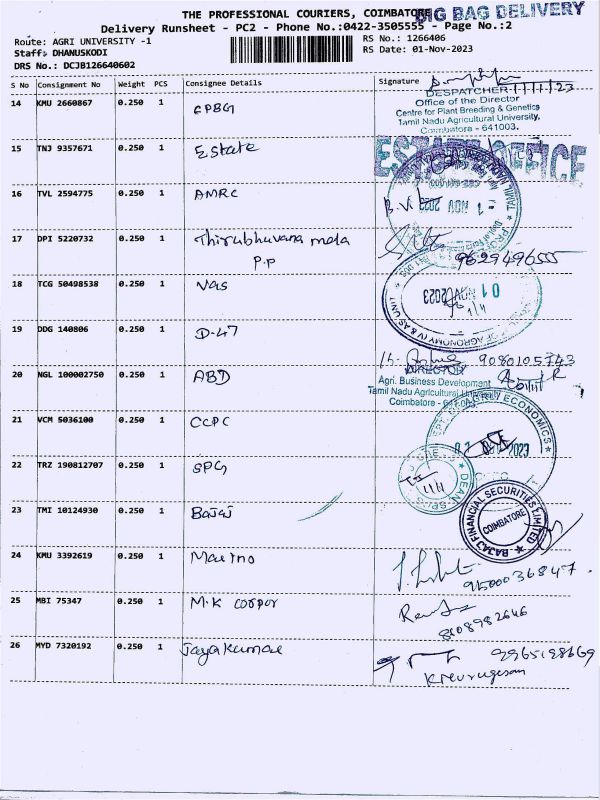 THE PROFESSIONAL COURIERS, COIMBATORE
BIG BAG DELIVERY
Delivery Runsheet - PC2 - Phone No.:0422-3505555 - Page No.:2
Route: AGRI UNIVERSITY -1
RS No.: 1266406
Staff: DHANUSKODI
RS Date: 01-Nov-2023
DRS No.: DCJB126640602
S No Consignment No Weight PCS Consignee Details Signature
14 KMU 2660867 0.250 1 CPBG
DESPATCHER
Office of the Director
Centre for Plant Breeding & Genetics
Tamil Nadu Agricultural University,
Coimbatore - 641003.
15 TNJ 9357671 0.250 1 Estate
ESTATE OFFICE
16 TVL 2594775 0.250 1 AMRC
1 NOV 2023
17 DPI 5220732 0.250 1 Thirubhuvana mala
P.P
9629496555
18 TCG 50498538 0.250 1 Nas
01 NOV 2023
OF AGRONOMY
19 DDG 140806 0.250 1 D-47
9080105743
20 NGL 100002750 0.250 1 ABD
DIRECTOR
Agri. Business Development
Tamil Nadu Agricultural University
Coimbatore -
21 VCM 5036100 0.250 1 CCPC
ECONOMICS
2023
22 TRZ 190812707 0.250 1 SPG
DEAN
23 TMI 10124930 0.250 1 Bajaj
BAJAJ FINANCIAL SECURITIES LIMITED
COIMBATORE
24 KMU 3392619 0.250 1
9150036847.
25 MBI 75347 0.250 1 M.K corpor
8108982646
26 MYD 7320192 0.250 1 Jayakumar
9965198669